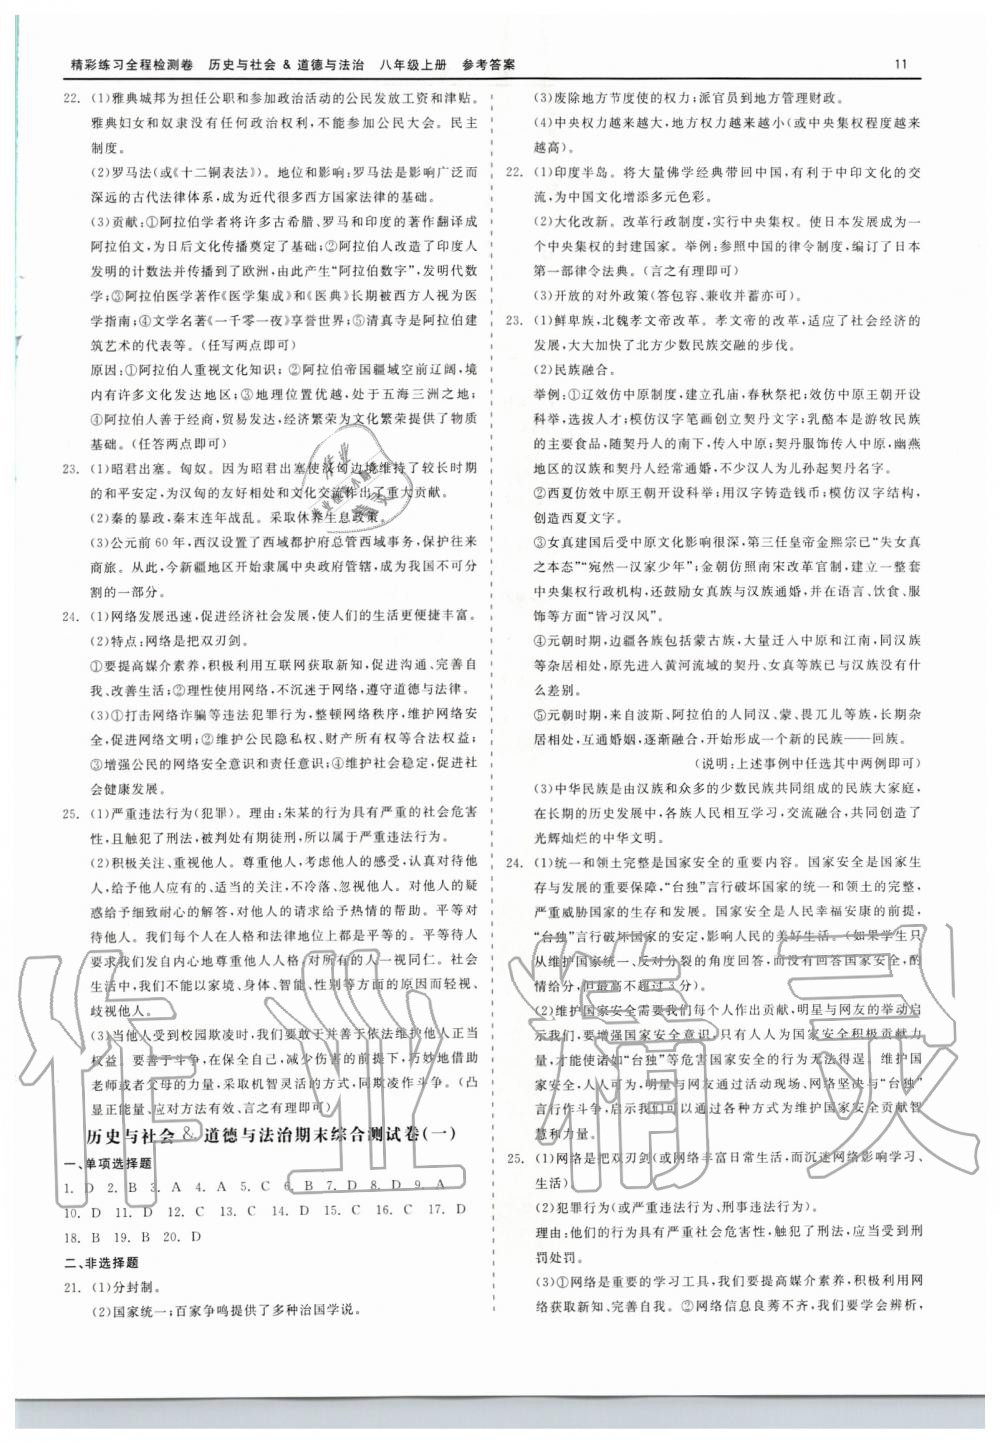 精彩练习全程检测卷　历史与社会 & 道德与法治　八年级上册　参考答案
11
22. (1)雅典城邦为担任公职和参加政治活动的公民发放工资和津贴。
雅典妇女和奴隶没有任何政治权利,不能参加公民大会。民主
制度。
(2)罗马法(或《十二铜表法》)。地位和影响:罗马法是影响广泛而
深远的古代法律体系,成为近代很多西方国家法律的基础。
(3)贡献:①阿拉伯学者将许多古希腊、罗马和印度的著作翻译成
阿拉伯文,为日后文化传播奠定了基础;②阿拉伯人改造了印度人
发明的计数法并传播到了欧洲,由此产生“阿拉伯数字”,发明代数
学;③阿拉伯医学著作《医学集成》和《医典》长期被西方人视为医
学指南;④文学名著《一千零一夜》享誉世界;⑤清真寺是阿拉伯建
筑艺术的代表等。(任写两点即可)
原因:①阿拉伯人重视文化知识;②阿拉伯帝国疆域空前辽阔,境
内有许多文化发达地区;③地理位置优越,处于五海三洲之地;
④阿拉伯人善于经商,贸易发达,经济繁荣为文化繁荣提供了物质
基础。(任答两点即可)
23. (1)昭君出塞。匈奴。因为昭君出塞使汉匈边境维持了较长时期
的和平安定,为汉匈的友好相处和文化交流作出了重大贡献。
(2)秦的暴政,秦末连年战乱。采取休养生息政策。
(3)公元前 60 年,西汉设置了西域都护府总管西域事务,保护往来
商旅。从此,今新疆地区开始隶属中央政府管辖,成为我国不可分
割的一部分。
24. (1)网络发展迅速,促进经济社会发展,使人们的生活更便捷丰富。
(2)特点:网络是把双刃剑。
①要提高媒介素养,积极利用互联网获取新知,促进沟通、完善自
我、改善生活;②理性使用网络,不沉迷于网络,遵守道德与法律。
(3)①打击网络诈骗等违法犯罪行为,整顿网络秩序,维护网络安
全,促进网络文明;②维护公民隐私权、财产所有权等合法权益;
③增强公民的网络安全意识和责任意识;④维护社会稳定,促进社
会健康发展。
25. (1)严重违法行为(犯罪)。理由:朱某的行为具有严重的社会危害
性,且触犯了刑法,被判处有期徒刑,所以属于严重违法行为。
(2)积极关注、重视他人。尊重他人,考虑他人感受,认真对待他
人,给予他人应有的、适当的关注,不冷落、忽视他人。对他人的疑
惑给予细致耐心的解答,对他人的请求给予热情的帮助。平等对
待他人。我们每个人在人格和法律地位上都是平等的。平等待人
要求我们发自内心地尊重他人人格,对所有的人一视同仁。社会
生活中,我们不能以家境、身体、智能、性别等方面的原因而轻视、
歧视他人。
(3)当他人受到校园欺凌时,我们要敢于并善于依法维护他人正当
权益。要善于斗争,在保全自己、减少伤害的前提下,巧妙地借助
老师或者父母的力量,采取机智灵活的方式,同欺凌作斗争。(凸
显正能量、应对方法有效、言之有理即可)
历史与社会 & 道德与法治期末综合测试卷(一)
一、单项选择题
1. D　2. B　3. A　4. A　5. C　6. B　7. D　8. D　9. A
10. D　11. D　12. C　13. C　14. D　15. C　16. C　17. D
18. B　19. B　20. D
二、非选择题
21. (1)分封制。
(2)国家统一;百家争鸣提供了多种治国学说。
(3)废除地方节度使的权力;派官员到地方管理财政。
(4)中央权力越来越大,地方权力越来越小(或中央集权程度越来
越高)。
22. (1)印度半岛。将大量佛学经典带回中国,有利于中印文化的交
流,为中国文化增添多元色彩。
(2)大化改新。改革行政制度,实行中央集权。使日本发展成为一
个中央集权的封建国家。举例:参照中国的律令制度,编订了日本
第一部律令法典。(言之有理即可)
(3)开放的对外政策(答包容、兼收并蓄亦可)。
23. (1)鲜卑族,北魏孝文帝改革。孝文帝的改革,适应了社会经济的
发展,大大加快了北方少数民族交融的步伐。
(2)民族融合。
举例:①辽效仿中原制度,建立孔庙,春秋祭祀;效仿中原王朝开设
科举,选拔人才;模仿汉字笔画创立契丹文字;乳酪本是游牧民族
的主要食品,随契丹人的南下,传入中原;契丹服饰传入中原,幽燕
地区的汉族和契丹人经常通婚,不少汉人为儿孙起契丹名。
②西夏仿效中原王朝开设科举;用汉字铸造钱币;模仿汉字结构,
创造西夏文字。
③女真建国后受中原文化影响很深,第三任皇帝金熙宗已“失女真
之本态”“宛然一汉家少年”;金朝仿照南宋改革官制,建立一整套
中央集权行政机构,还鼓励女真族与汉族通婚,并在语言、饮食、服
饰等方面“皆习汉风”。
④元朝时期,边疆各族包括蒙古族,大量迁入中原和江南,同汉族
等杂居相处,原先进入黄河流域的契丹、女真等族已与汉族没有什
么差别。
⑤元朝时期,来自波斯、阿拉伯的人同汉、蒙、畏兀儿等族,长期杂
居相处,互通婚姻,逐渐融合,开始形成一个新的民族——回族。
(说明:上述事例中任选其中两例即可)
(3)中华民族是由汉族和众多的少数民族共同组成的民族大家庭,
在长期的历史发展中,各族人民相互学习,交流融合,共同创造了
光辉灿烂的中华文明。
24. (1)统一和领土完整是国家安全的重要内容。国家安全是国家生
存与发展的重要保障,“台独”言行破坏国家的统一和领土的完整,
严重威胁国家的生存和发展。国家安全是人民幸福安康的前提,
“台独”言行破坏国家的安定,影响人民的美好生活。(如果学生只
从维护国家统一、反对分裂的角度回答,而没有回答国家安全,酌
情给分,但最高不超过 3 分)
(2)维护国家安全需要我们每个人作出贡献,明星与网友的举动启
示我们:要增强国家安全意识,只有人人为国家安全积极贡献力
量,才能使诸如“台独”等危害国家安全的行为无法得逞。维护国
家安全,人人可为,明星与网友通过活动现场、网络坚决与“台独”
言行作斗争,启示我们,每个人都能够为维护国家安全贡献智
慧和力量。
25. (1)网络是把双刃剑(或网络丰富日常生活,而沉迷网络影响学习、
生活)
(2)犯罪行为(或严重违法行为、刑事违法行为)。
理由:他们的行为具有严重社会危害性,触犯了刑法,应当受到刑
罚处罚。
(3)①网络是重要的学习工具,我们要提高媒介素养,积极利用网
络获取新知、完善自我。②网络信息良莠不齐,我们要学会辨析,
作业精灵